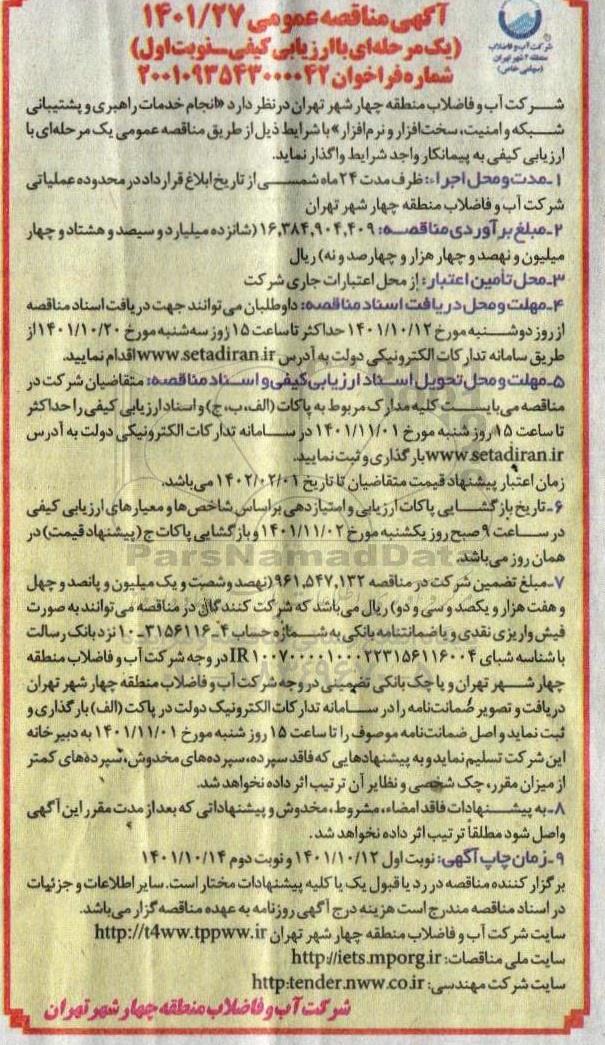 آگهی مناقصه عمومی ۱۴۰۱/۲۷
(یک مرحله‌ای با ارزیابی کیفی-نوبت اول)
شماره فراخوان ۲۰۰۱۰۹۳۵۴۳۰۰۰۰۴۲
شرکت آب و فاضلاب
منطقه ۴ شهر تهران
(سهامی خاص)
شرکت آب و فاضلاب منطقه چهار شهر تهران در نظر دارد «انجام خدمات راهبری و پشتیبانی
شبکه و امنیت، سخت‌افزار و نرم‌افزار» با شرایط ذیل از طریق مناقصه عمومی یک مرحله‌ای با
ارزیابی کیفی به پیمانکار واجد شرایط واگذار نماید.
۱-مدت و محل اجراء: ظرف مدت ۲۴ ماه شمسی از تاریخ ابلاغ قرارداد در محدوده عملیاتی
شرکت آب و فاضلاب منطقه چهار شهر تهران
۲-مبلغ برآوردی مناقصه: ۱۶,۳۸۴,۹۰۴,۴۰۹ (شانزده میلیارد و سیصد و هشتاد و چهار
میلیون و نهصد و چهار هزار و چهارصد و نه) ریال
۳-محل تأمین اعتبار: از محل اعتبارات جاری شرکت
۴-مهلت و محل دریافت اسناد مناقصه: داوطلبان می‌توانند جهت دریافت اسناد مناقصه
از روز دوشنبه مورخ ۱۴۰۱/۱۰/۱۲ حداکثر تا ساعت ۱۵ روز سه‌شنبه مورخ ۱۴۰۱/۱۰/۲۰ از
طریق سامانه تدارکات الکترونیکی دولت به آدرس www.setadiran.ir اقدام نمایید.
۵-مهلت و محل تحویل اسناد ارزیابی کیفی و اسناد مناقصه: متقاضیان شرکت در
مناقصه می‌بایست کلیه مدارک مربوط به پاکات (الف، ب، ج) و اسناد ارزیابی کیفی را حداکثر
تا ساعت ۱۵ روز شنبه مورخ ۱۴۰۱/۱۱/۰۱ در سامانه تدارکات الکترونیکی دولت به آدرس
www.setadiran.ir بارگذاری و ثبت نمایید.
زمان اعتبار پیشنهاد قیمت متقاضیان تا تاریخ ۱۴۰۲/۰۲/۰۱ می‌باشد.
۶-تاریخ بازگشایی پاکات ارزیابی و امتیازدهی براساس شاخص‌ها و معیارهای ارزیابی کیفی
در ساعت ۹ صبح روز یکشنبه مورخ ۱۴۰۱/۱۱/۰۲ و بازگشایی پاکات ج (پیشنهاد قیمت) در
همان روز می‌باشد.
ParsNamadData
۷-مبلغ تضمین شرکت در مناقصه ۹۶۱,۵۴۷,۱۳۲ (نهصد و شصت و یک میلیون و پانصد و چهل
و هفت هزار و یکصد و سی و دو) ریال می‌باشد که شرکت کنندگان در مناقصه می‌توانند به صورت
فیش واریزی نقدی و یا ضمانتنامه بانکی به شماره حساب ۴-۳۱۵۶۱۱۶-۱۰ نزد بانک رسالت
با شناسه شبای IR۱۰۰۷۰۰۰۰۱۰۰۰۲۲۳۱۵۶۱۱۶۰۰۴ در وجه شرکت آب و فاضلاب منطقه
چهار شهر تهران و یا چک بانکی تضمینی در وجه شرکت آب و فاضلاب منطقه چهار شهر تهران
دریافت و تصویر ضمانت‌نامه را در سامانه تدارکات الکترونیک دولت در پاکت (الف) بارگذاری و
ثبت نماید و اصل ضمانت‌نامه موصوف را تا ساعت ۱۵ روز شنبه مورخ ۱۴۰۱/۱۱/۰۱ به دبیرخانه
این شرکت تسلیم نماید و به پیشنهادهایی که فاقد سپرده، سپرده‌های مخدوش، سپرده‌های کمتر
از میزان مقرر، چک شخصی و نظایر آن ترتیب اثر داده نخواهد شد.
۸-به پیشنهادات فاقد امضاء، مشروط، مخدوش و پیشنهاداتی که بعد از مدت مقرر این آگهی
واصل شود مطلقاً ترتیب اثر داده نخواهد شد.
۹-زمان چاپ آگهی: نوبت اول ۱۴۰۱/۱۰/۱۲ و نوبت دوم ۱۴۰۱/۱۰/۱۴
برگزار کننده مناقصه در رد یا قبول یک یا کلیه پیشنهادات مختار است. سایر اطلاعات و جزئیات
در اسناد مناقصه مندرج است هزینه درج آگهی روزنامه به عهده مناقصه گزار می‌باشد.
سایت شرکت آب و فاضلاب منطقه چهار شهر تهران http://t4ww.tppww.ir
سایت ملی مناقصات: http://iets.mporg.ir
سایت شرکت مهندسی: http:tender.nww.co.ir
شرکت آب و فاضلاب منطقه چهار شهر تهران